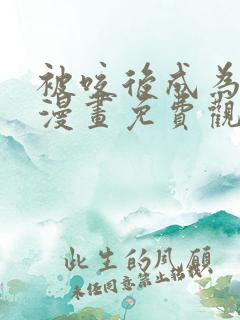 被咬後成為
漫畫免費觀
此生的風願
未经同意禁止搭载